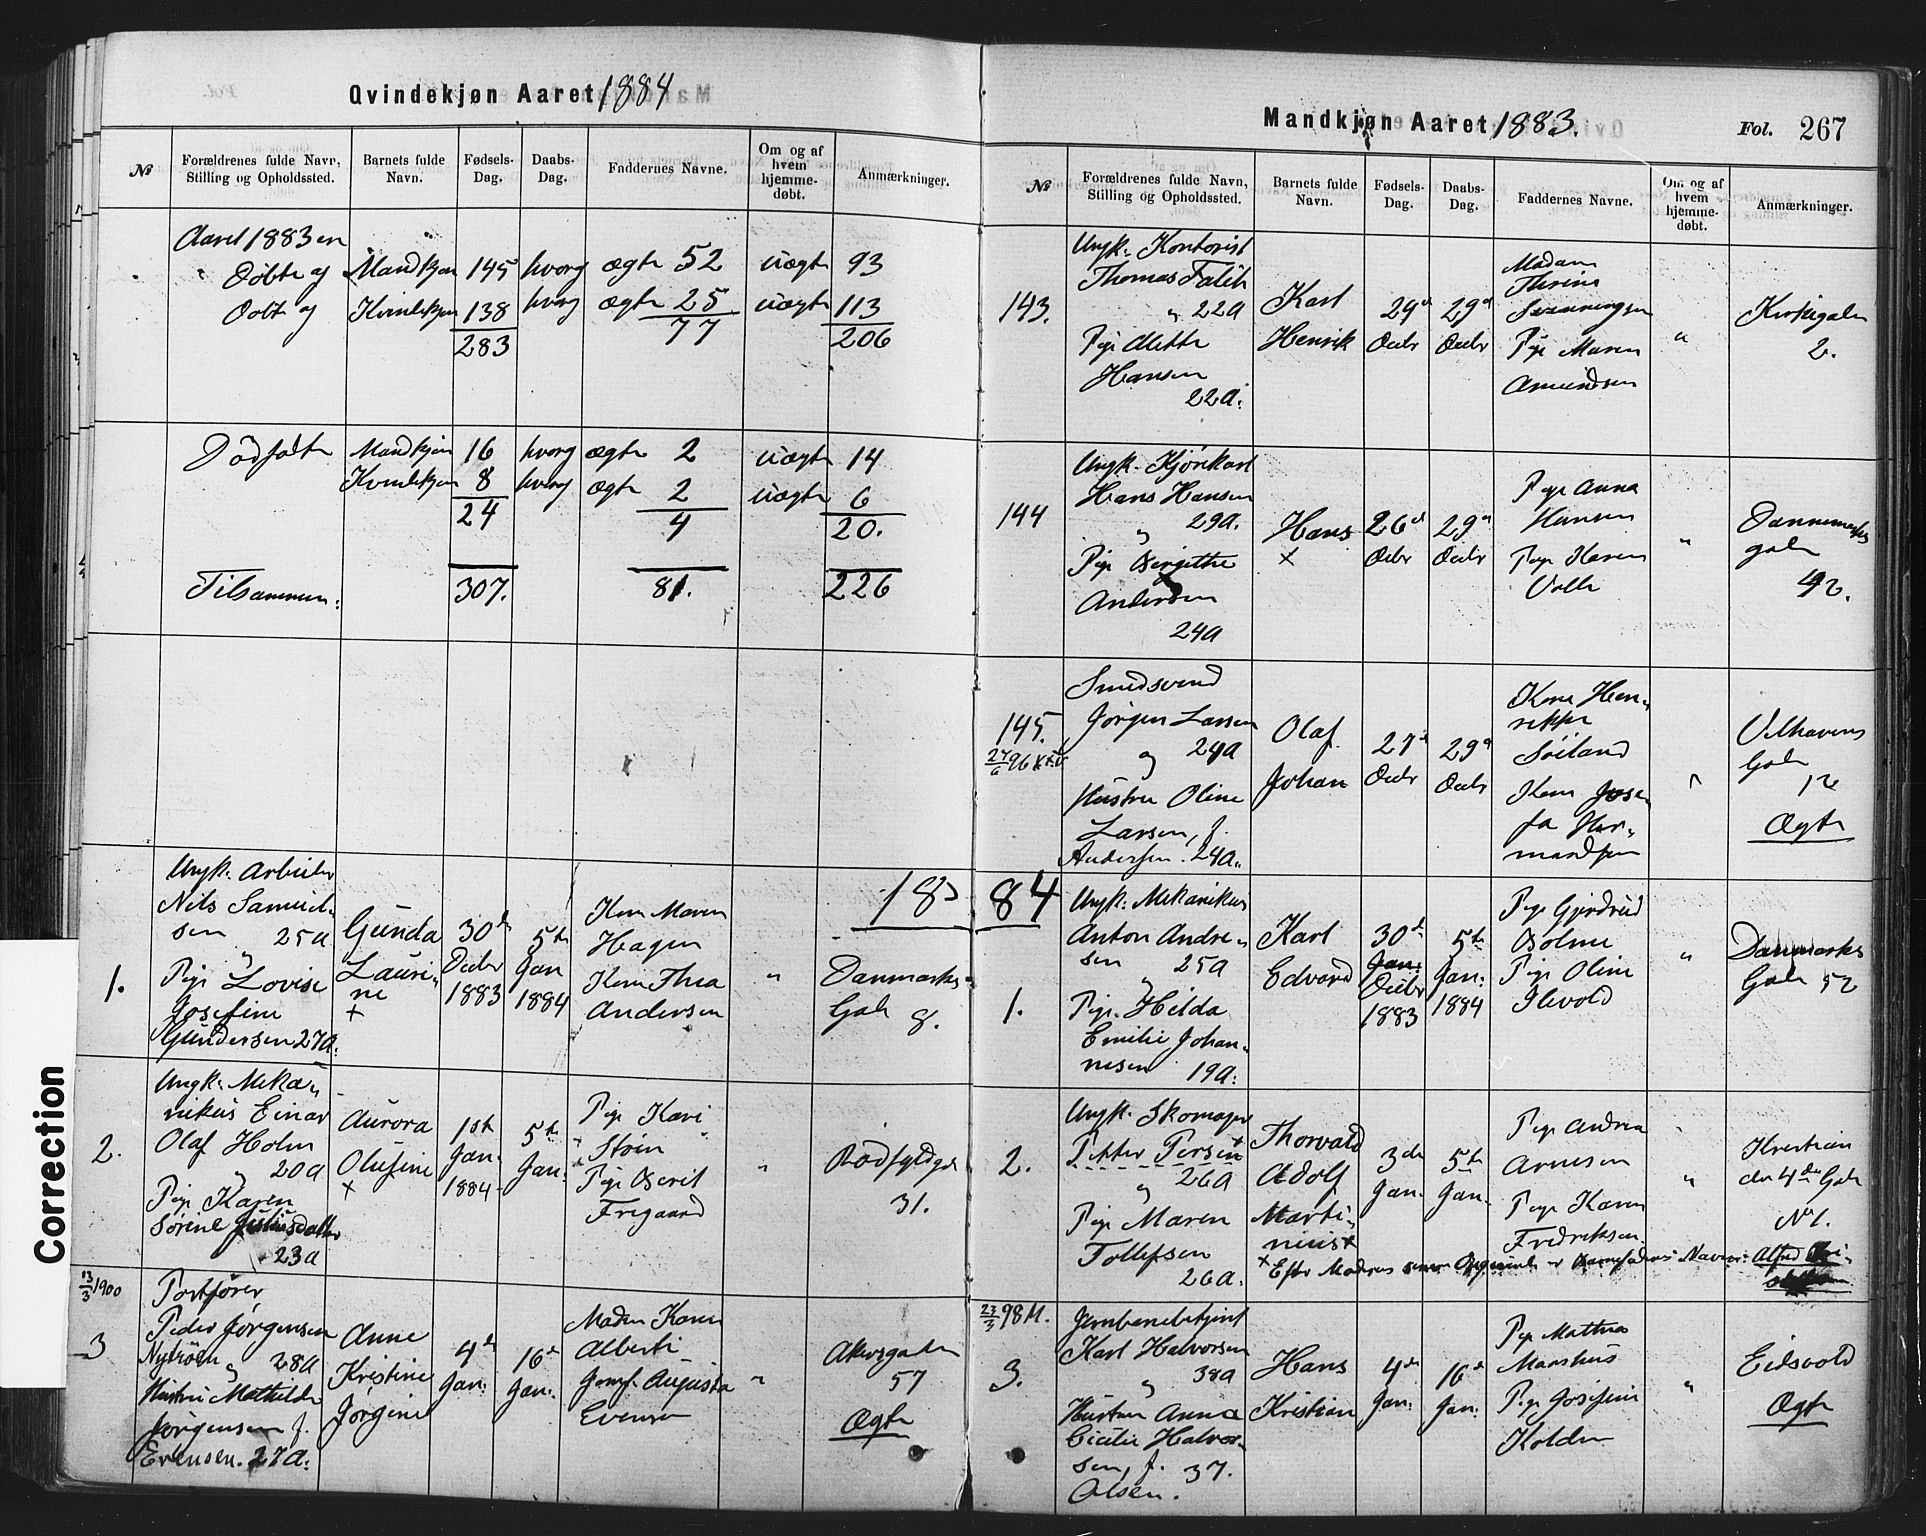 Qvindekjøn Aaret 1884
№
Forældrenes fulde Navn, Stilling og Opholdssted.
Barnets fulde Navn.
Fødsels-Dag.
Daabs-Dag.
Faddernes Navne.
Om og af hvem hjemme-døbt.
Anmærkninger.
Aaret 1883 er
Døbte af Mandkjøn 145 hvorg ægte 52 uægte 93
Døbt af Kvindekjøn 138 hvorg ægte 25 uægte 113
283 77 206
Dødfødte Mandkjøn 16 hvorg ægte 2 uægte 14
Kvindekjøn 8 hvorg ægte 2 uægte 6
24 4 20.
Tilsammen: 307. 81. 226
18
1.
Ungk. Arbeider
Nils Samuel-
sen 25 A
"
Pige Lovise
Josefine
Gundersen 27 A.
Gunda
Lauri-
ne
+
30d
Decbr
1883
5te
Jan
1884
Kone Maren
Hagen
Kone Thea
Andersen
"
Danmarks
Gade
8.
2.
Ungk. Meka-
nikus Einar
Olaf Holm
" 20 A
Pige Karen
Sørine
23 A
Aurora
Olufine
+
1st
Jan.
1884
5te
Jan.
Pige Kari
Støen
Pige Berit
Fregaard
"
Rødfyldgd
31.
13/3 1900
3
Portfører
Peder Jørgensen
Nyböen " 28 A
Hustru Mathilde
Jørgensen f.
Evensen. 27 A.
Anne
Kristine
Jørgine
4d
Jan.
16d
Jan.
Madm Karen
Alberti
Jomf. Augusta
Evensen
"
Akersgaden
57
Ægte
Mandkjøn Aaret 1883.
Fol. 267
№
Forældrenes fulde Navn, Stilling og Opholdssted.
Barnets fulde Navn.
Fødsels-Dag.
Daabs-Dag.
Faddernes Navne.
Om og af hvem hjemme-døbt.
Anmærkninger.
143.
Ungk. Kontorist
Thomas Falth
" 22 A
Pige Mette
Hansen
22 A.
Karl
Henrik
29d
Decbr
29d
Decbr
Madam
Thrine
Svenningsen
Pige Maren
Amundsen
"
Kirkegaden
2.
144
Ungk. Kjørekarl
Hans Hansen
" 29 A.
Pige Birgitthe
Andersen
24 A
Hans
+
26d
Decbr
29d
Decbr
Pige Anna
Hansen
Pige Karen
Volle
"
Dannemarks
gade
42.
145.
27/6 96
Smedsvend
Jørgen Larsen
og 24 A
Hustru Oline
Larsen, f.
Andersen. 24 A.
Olaf
Johan
27d
Decbr
29d
Decbr
Kone Hen-
rikke
Søiland
Kone Jose-
fa Her-
mandsen
"
Velhavens
Gade
12
Ægte
84
1.
Ungk. Mekanikus
Anton Andre-
sen 25 A
"
Pige Hilda
Emilie Johan-
nesen 19 A.
Karl
Edvard
30d
Jan.
Decbr
1883
5te
Jan:
1884
Pige Gjerdrud
Bolme
Pige Oline
Ilevold
"
Danmarks
Gade 52
2.
Ungk. Skomager
Petter Persen
" 26 A
Pige Maren
Tollefsen
26 A.
Thorvald
Adolf
Marti-
nius +
3die
Jan.
5te
Jan.
Pige Andrea
Arnesen
Pige Karen
Fredriksen
"
Kristian
den 4de Gade
No 1.
+ Efter Modrens senere Opgivende er Barnefaderens Navn: Alfred
23/3 98 M.
3.
Jernbanebetjent
Karl Halvorsen
" 38 A
Hustru Anna
Cicilie Halvor-
sen, f. 37.
Olsen.
Hans
Kristian
4de
Jan.
16d
Jan.
Pige Mathea
Maashus
Pige Josefine
Kolden
"
Eidsvold
Ægte
Correction